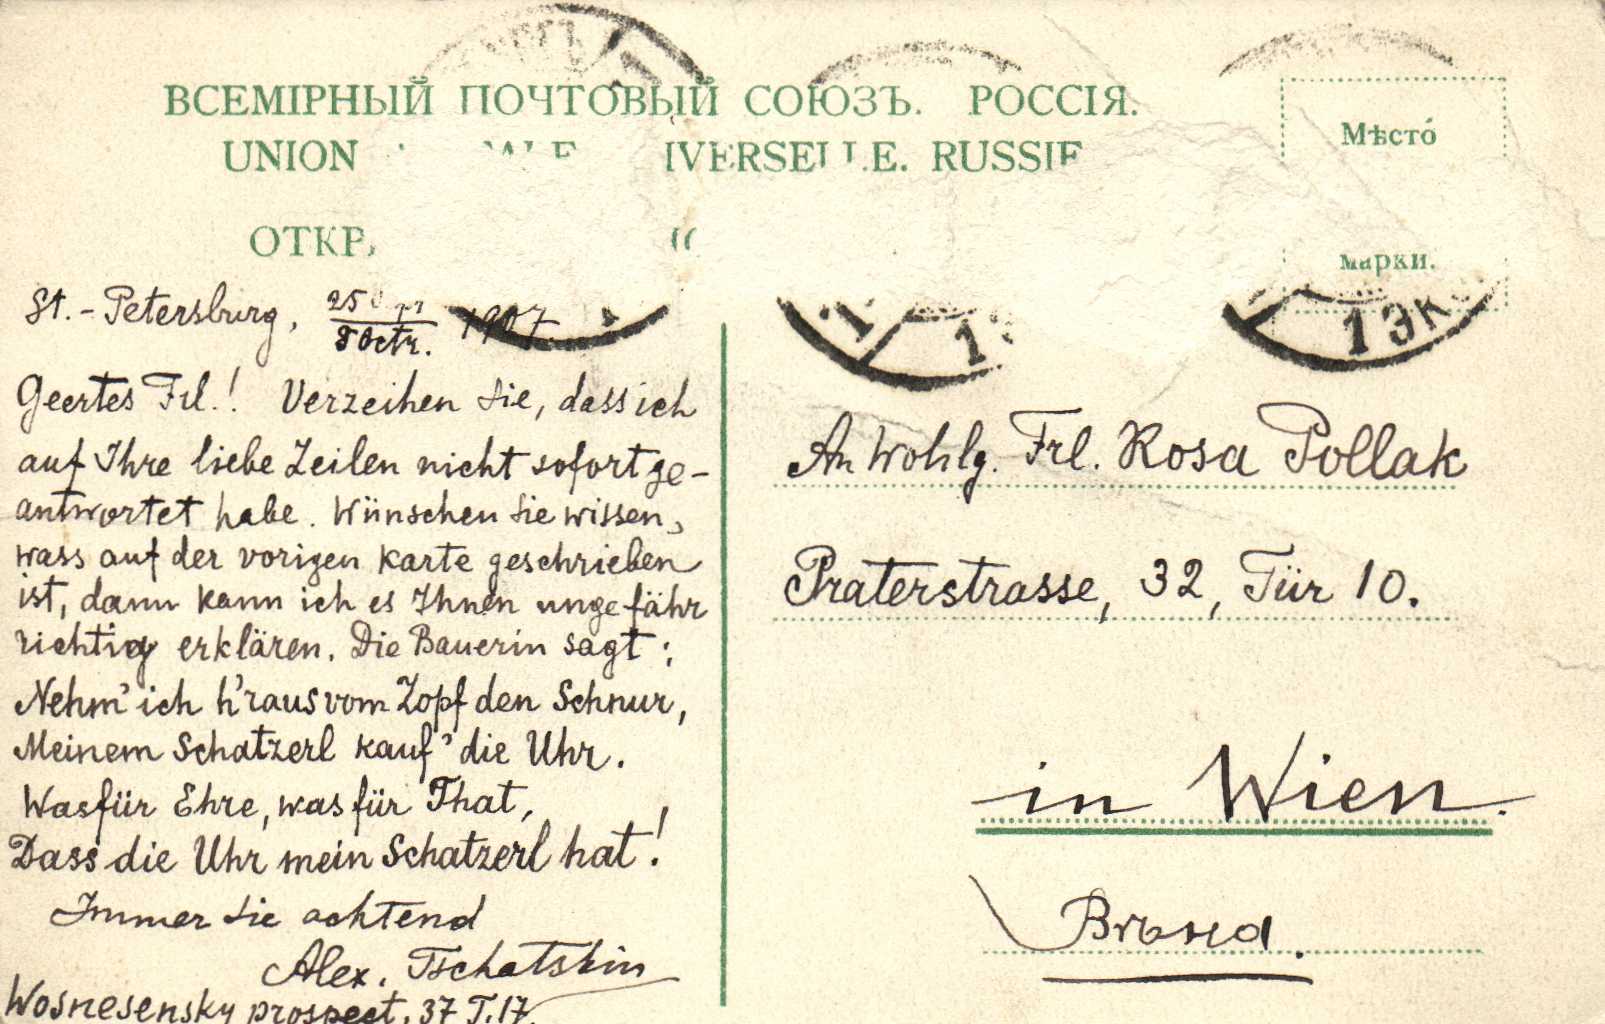 ВСЕМІРНЫЙ ПОЧТОВЫЙ СОЮЗЪ. РОССІЯ.
UNION IVERSELLE. RUSSIE
ОТКР
Мѣсто́
марки.
St.-Petersburg, 25 / 8 Octr. 1907.
Geertes Frl.! Verzeihen Sie, dass ich
auf Ihre liebe Zeilen nicht sofort ge-
antwortet habe. Wünschen Sie wissen,
wass auf der vorigen Karte geschrieben
ist, dann kann ich es Ihnen ungefähr
richtig erklären. Die Bauerin sagt:
Nehm' ich h'raus vom Zopf den Schnur,
Meinem Schatzerl kauf' die Uhr.
Was für Ehre, was für That,
Dass die Uhr mein Schatzerl hat!
Immer Sie achtend
Alex. Tschatskin
Wosnesensky prospect. 37 T.17.
An Wohlg. Frl. Rosa Pollak
Praterstrasse, 32, Tür 10.
in Wien.
Вѣна.
1 ЭК